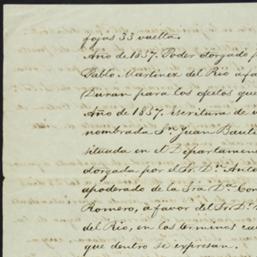 fojas 33 vuelta.
Año de 1857. Poder otorgado p
Pablo Martinez del Rio a fa
Duran para los efetos que
Año de 1857. escritura de
nombrada Sn. Juan Bauti
situada en el Departamen
otorgada por el Sr. Dn. Anto
apoderado de la Sra. Da. Con
Romero, á favor del Sr. Dn.
del Rio, en los terminos
que dentro se espresan.